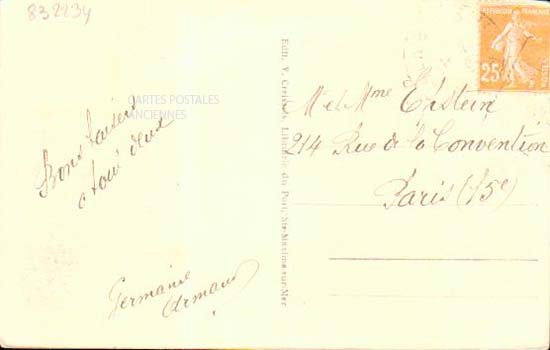 832234
CARTES POSTALES
ANCIENNES
Bons baisers
à tous deux
Germaine
Armand
Edit. V. Librairie du Port, Ste-Maxime-sur-Mer
REPUBLIQUE FRANÇAISE
25c
POSTES
M et Mme Epstein
214 Rue de la Convention
Paris (15e)